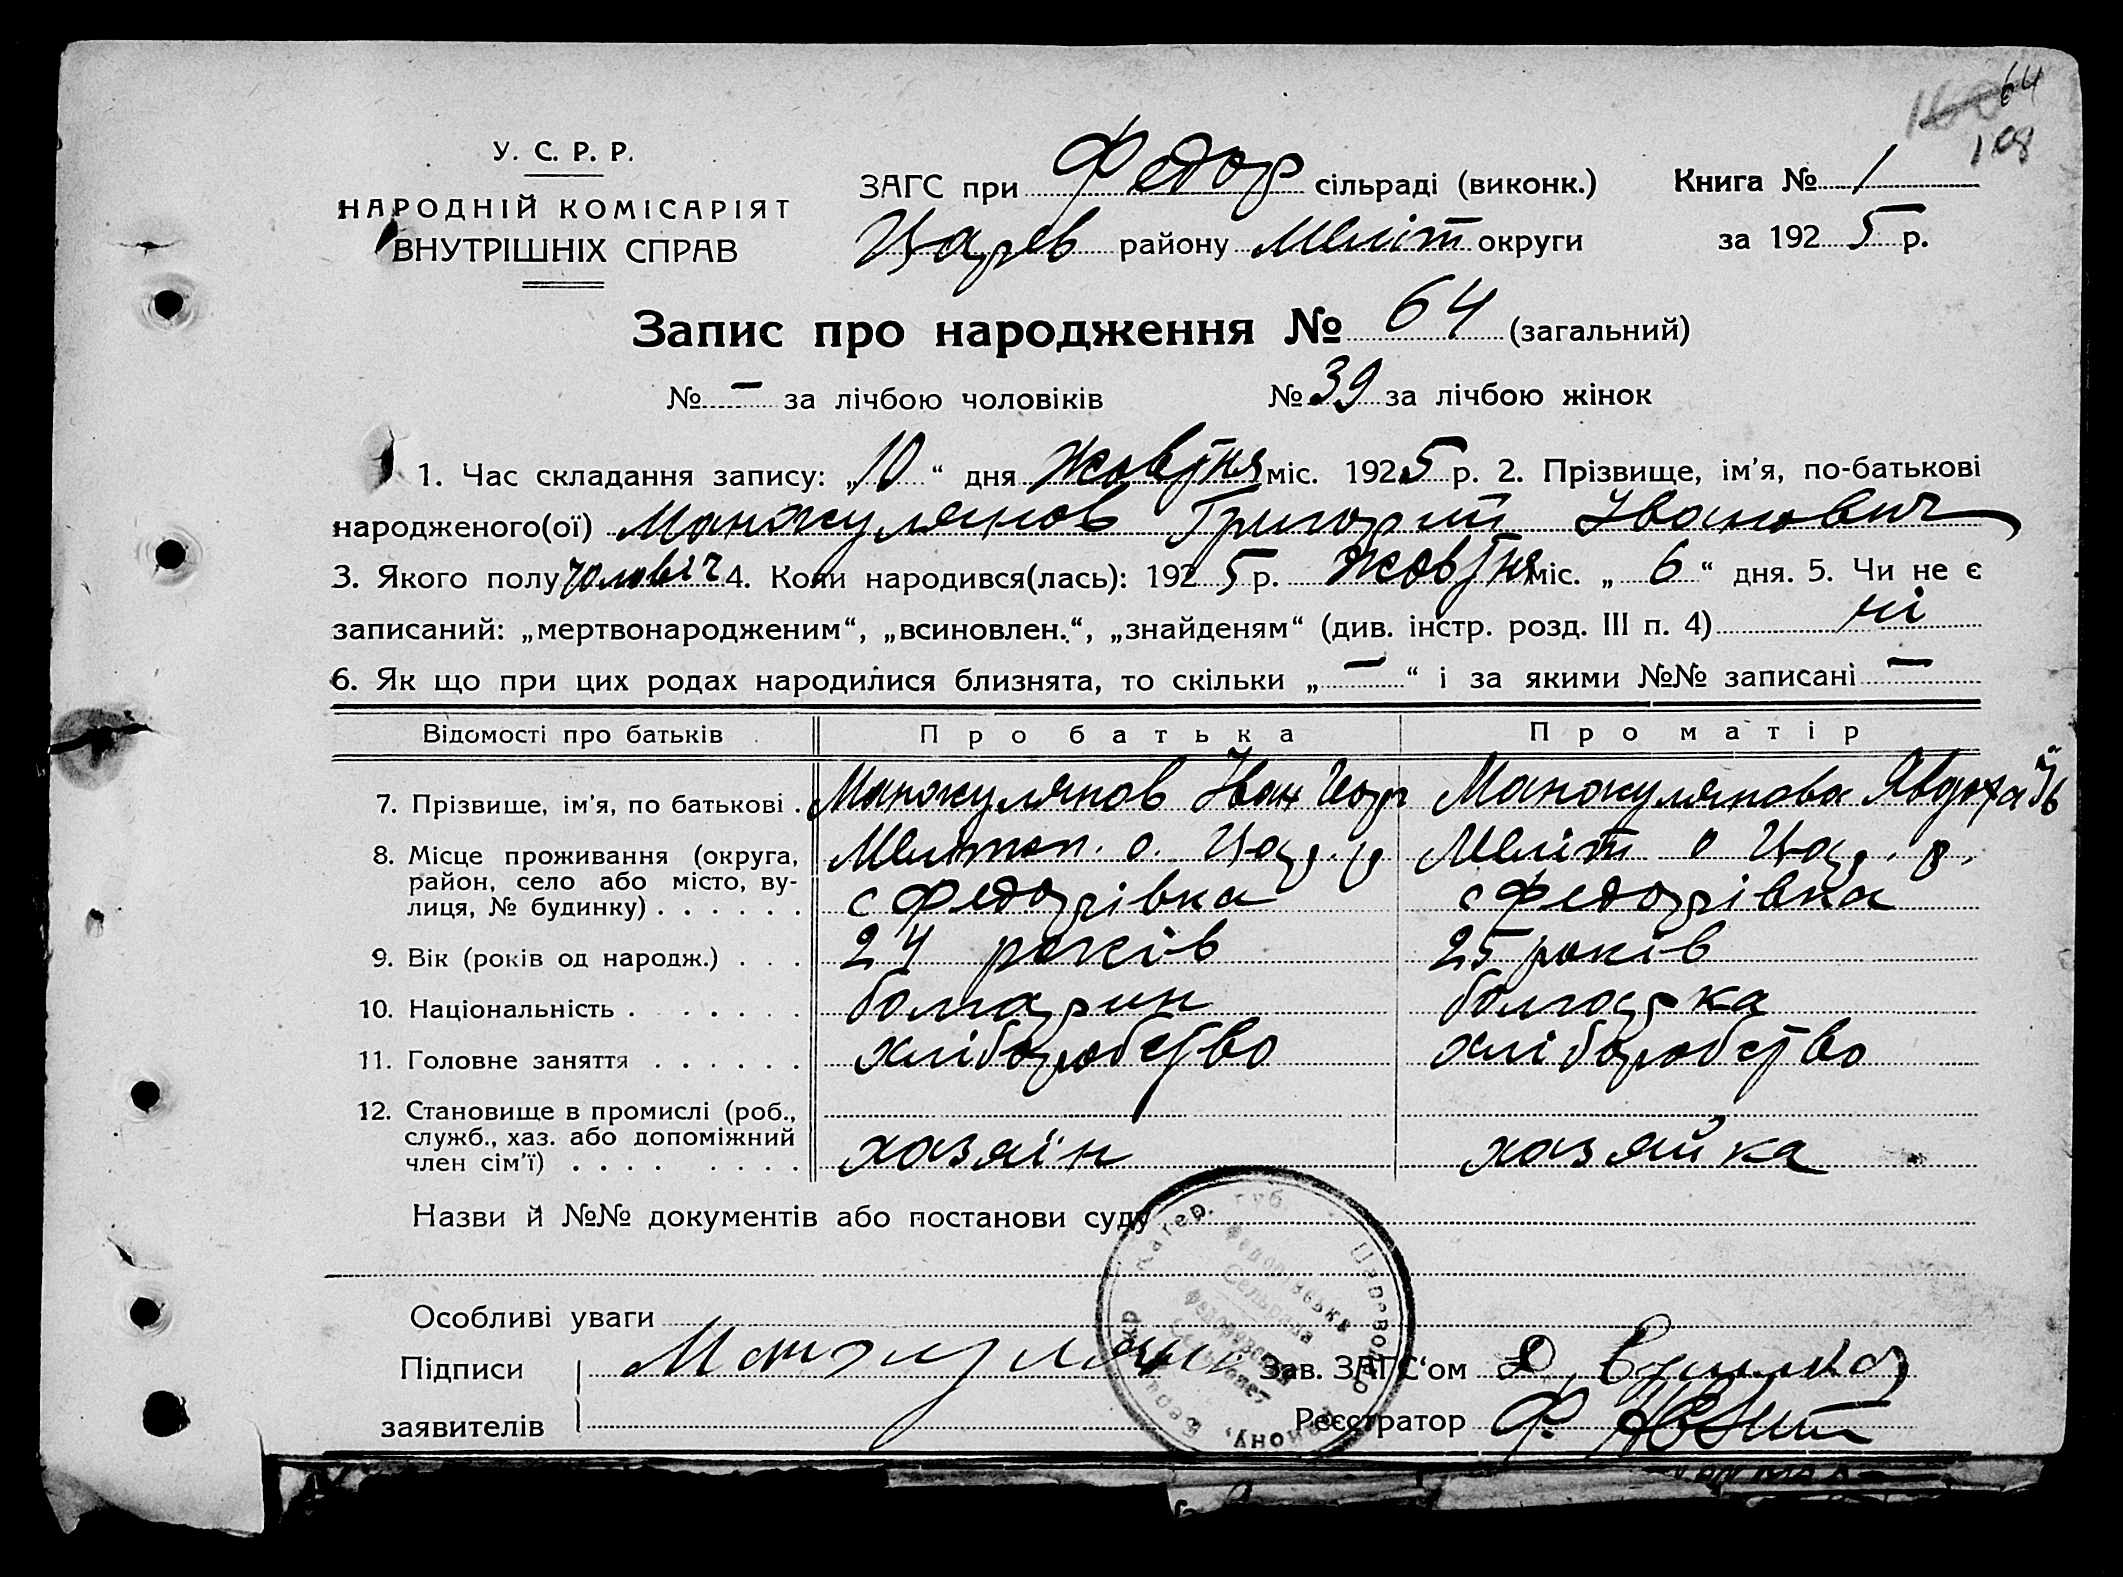 64
108
У. С. Р. Р.
НАРОДНІЙ КОМІСАРІЯТ
ВНУТРІШНІХ СПРАВ
ЗАГС при Федор сільраді (виконк.) Книга № 1
Царев району Меліт округи за 1925 р.
Запис про народження № 64 (загальний)
№ – за лічбою чоловіків № 39 за лічбою жінок
1. Час складання запису: „10“ дня Жовтня міс. 1925 р. 2. Прізвище, ім'я, по-батькові
народженого(ої) Манжулянов Григорий Иванович
3. Якого полу Чоловіч 4. Коли народився(лась): 1925 р. Жовтня міс. „6“ дня. 5. Чи не є
записаний: „мертвонародженим“, „всиновлен.“, „знайденям“ (див. інстр. розд. III п. 4) ні
6. Як що при цих родах народилися близнята, то скільки „–“ і за якими №№ записані –
Відомості про батьків Про батька Про матір
7. Прізвище, ім'я, по батькові . Манжулянов Иван Манжулянова Явдоха
8. Місце проживання (округа, Мелітоп. о. Цар. р Меліт о Цар. р.
район, село або місто, ву- с Федорівка с Федорівка
лиця, № будинку) . . . . . .
9. Вік (років од народж.) . . . 24 років 25 років
10. Національність . . . . . . болгарин болгарка
11. Головне заняття . . . . . . хліборобство хліборобство
12. Становище в промислі (роб.,
служб., хаз. або допоміжний хазяїн хазяйка
член сім'ї) . . . . . . . .
Назви й №№ документів або постанови суду
Особливі уваги
Підписи Зав. ЗАГС'ом
заявителів Реєстратор
Федорівська
Сельрада
Федоровский
Сельсовет